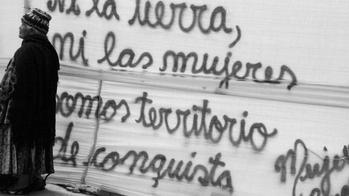 Ni la tierra,
ni las mujeres
somos territorio
de conquista